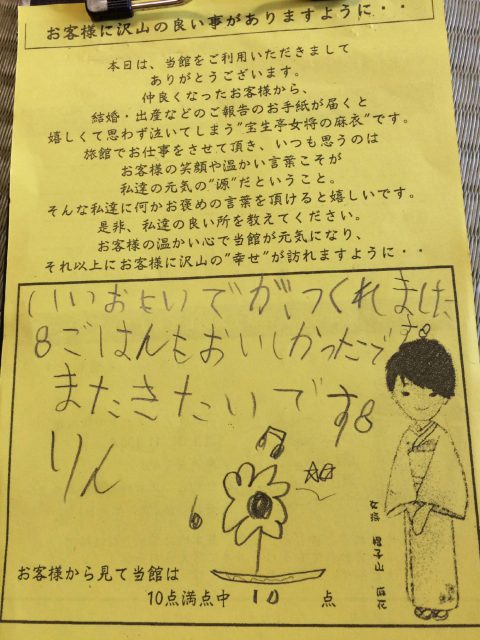 お客様に沢山の良い事がありますように・・
本日は、当館をご利用いただきまして
ありがとうございます。
仲良くなったお客様から、
結婚・出産などのご報告のお手紙が届くと
嬉しくて思わず泣いてしまう"宝生亭女将の麻衣"です。
旅館でお仕事をさせて頂き、いつも思うのは
お客様の笑顔や温かい言葉こそが
私達の元気の"源"だということ。
そんな私達に何かお褒めの言葉を頂けると嬉しいです。
是非、私達の良い所を教えてください。
お客様の温かい心で当館が元気になり、
それ以上にお客様に沢山の"幸せ"が訪れますように・・
いいおもいでが、つくれました
8ごはんもおいしかったで
す8
またきたいです8
りん
女将 帽子山 麻衣
お客様から見て当館は
10点満点中 10 点